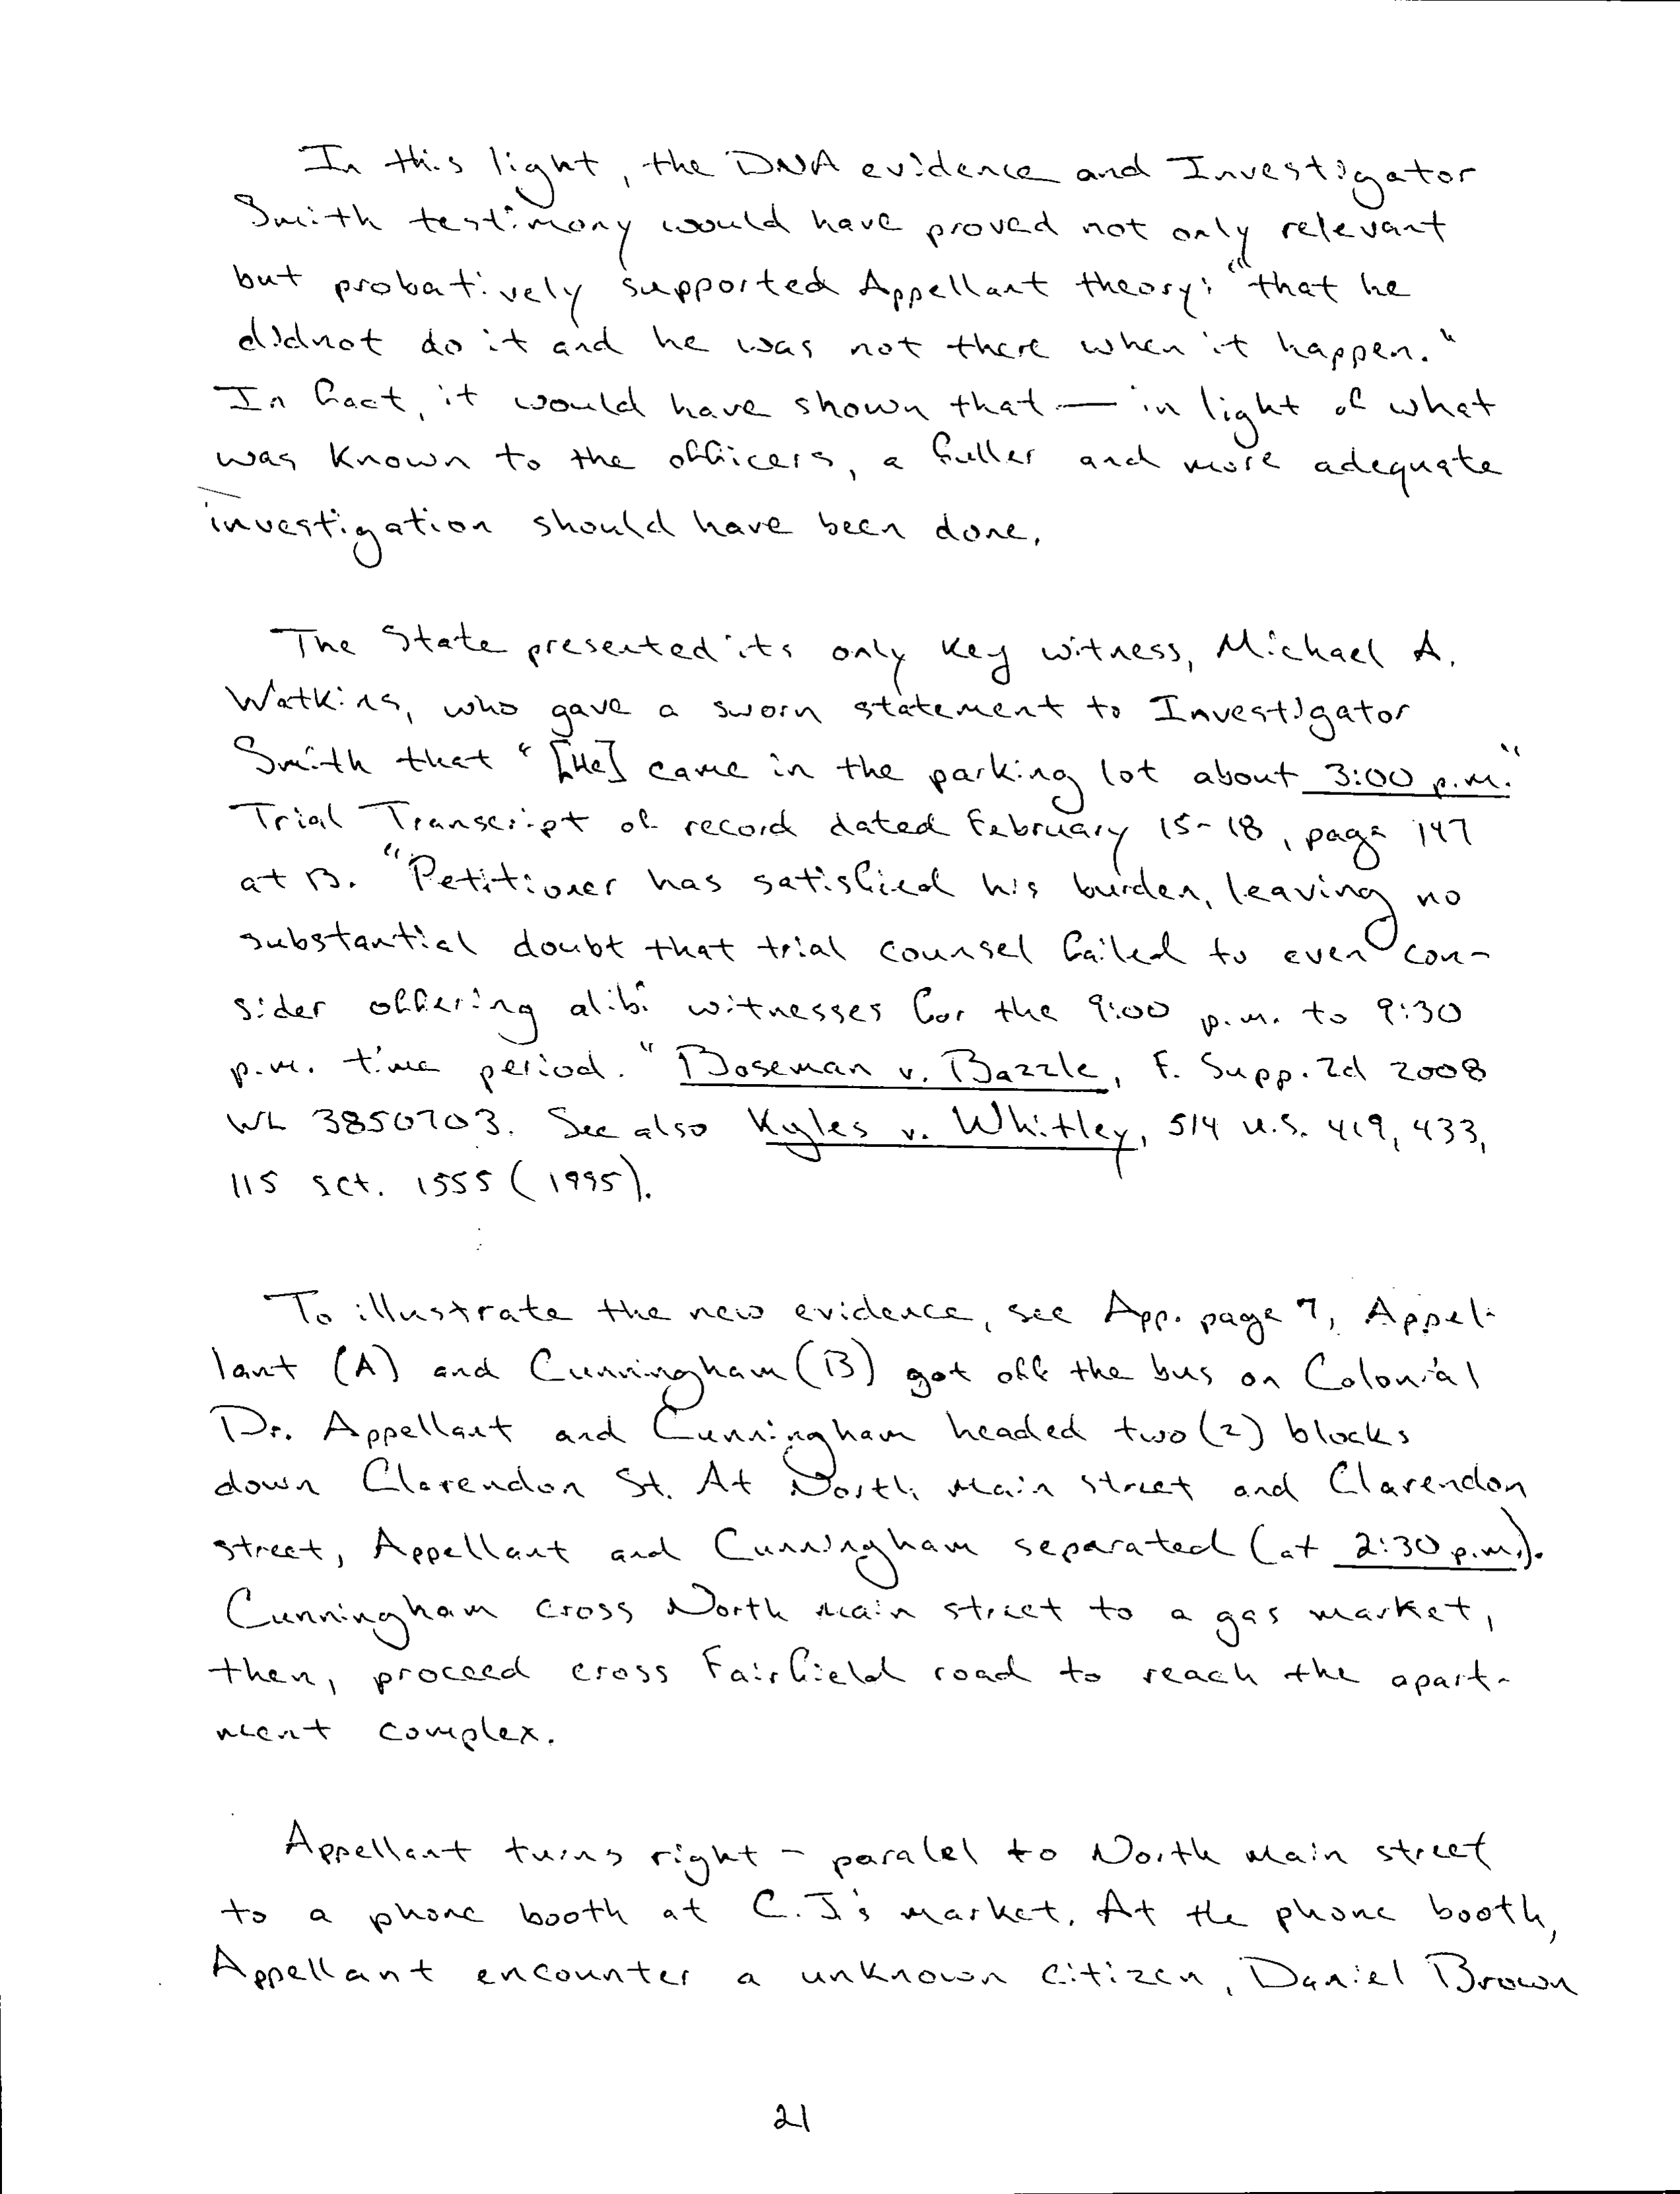 In this light, the DNA evidence and Investigator
Smith testimony would have proved not only relevant
but probatively supported Appellant theory: "that he
didnot do it and he was not there when it happen."
In fact, it would have shown that — in light of what
was known to the officers, a fuller and more adequate
investigation should have been done.
The State presented its only key witness, Michael A.
Watkins, who gave a sworn statement to Investigator
Smith that "[He] came in the parking lot about 3:00 p.m."
Trial Transcript of record dated February 15-18, page 147
at B. "Petitioner has satisfied his burden, leaving no
substantial doubt that trial counsel failed to even con-
sider offering alibi witnesses for the 9:00 p.m. to 9:30
p.m. time period." Boseman v. Bazzle, F. Supp. 2d 2008
WL 3850703. See also Kyles v. Whitley, 514 U.S. 419, 433,
115 Sct. 1555 (1995).
To illustrate the new evidence, see App. page 7, Appel-
lant (A) and Cunningham (B) got off the bus on Colonial
Dr. Appellant and Cunningham headed two (2) blocks
down Clarendon St. At North Main street and Clarendon
street, Appellant and Cunningham separated (at 2:30 p.m.).
Cunningham cross North Main street to a gas market,
then, proceed cross Fairfield road to reach the apart-
ment complex.
Appellant turns right - paralel to North Main street
to a phone booth at C.J.'s market. At the phone booth,
Appellant encounter a unknown citizen, Daniel Brown
21